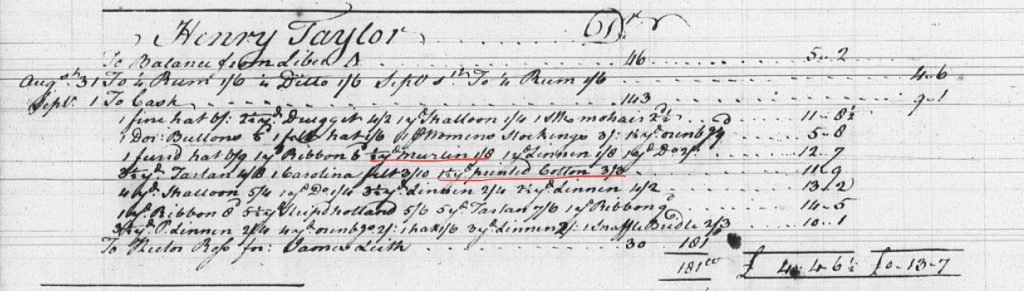 Henry Taylor Dr
To Balance from Liber A 46 5 - 2
Augst 31 To ¼ Rum 1/6 ¼ Ditto 1/6 Septr 1st To ¼ Rum 1/6 4 - 6
Septr 1 To Cash 143 9 - 1
1 fine hat 6/: yd Drugget 4/2 1 yd Shalloon 1/4 1 Sk mohair 2½ 11 - 8½
1 Doz: Buttons 6d 1 felt hat 1/6 1 pr Womens Stockings 3/: 1½ yd ozenbg 5 - 8
1 fured hat 6/9 1 yd Ribbon 6d ½ yd Muslin 1/8 1 yd Linnen 1/8 1 yd Do 2/: 12 - 7
3½ yd Tartan 4/8 1 Carolina felt 3/10 1½ yd printed Cotton 3/3 11 - 9
4 yd Shalloon 5/4 1 yd Do 1/4 3½ yd Linnen 2/4 2½ yd Linnen 4/2 13 - 2
1 yd Ribbon 8d 5½ yd holland 5/6 5 yd Tartan 7/6 1 yd Ribbon 9d 14 - 5
3½ yd Linnen 2/4 4 yd ozenbg 2/: 1 hat 1/6 3 yd Linnen 2/: 1 Snaffle Bridle 2/3 10 - 1
To for: James Leith 30 181
181 £ 4 - 4 - 6½ £0 - 13 - 7